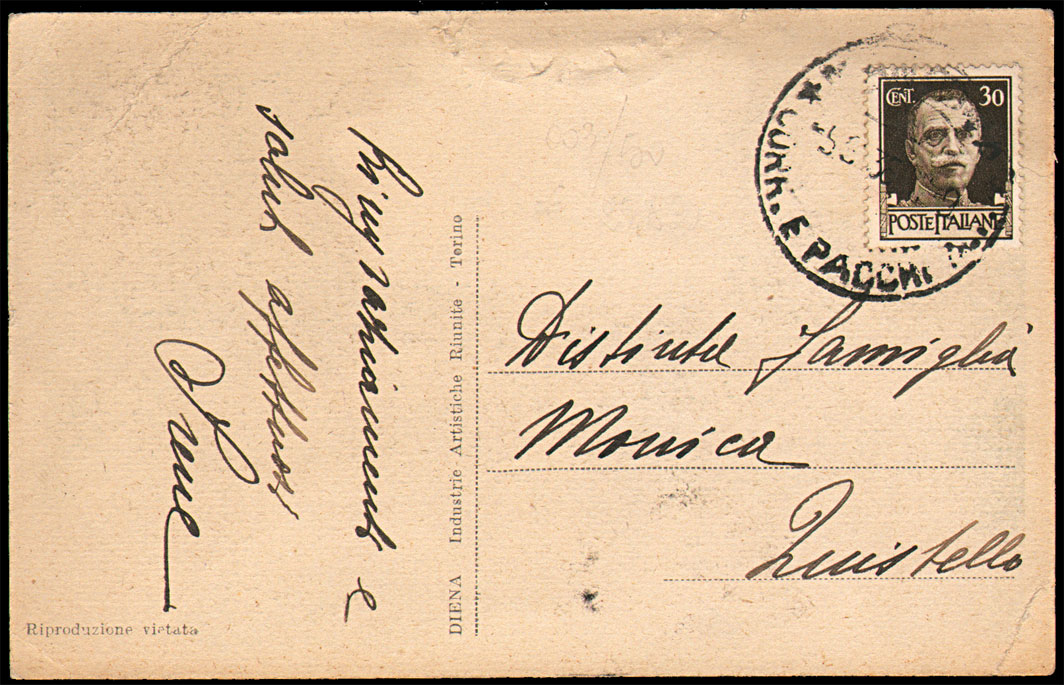 Ringraziamenti e
saluti affettuosi
DIENA Industrie Artistiche Riunite - Torino
Riproduzione vietata
CENT. 30
POSTE ITALIANE
CORR. E PACCHI
Distinta Famiglia
Monica
Quistello